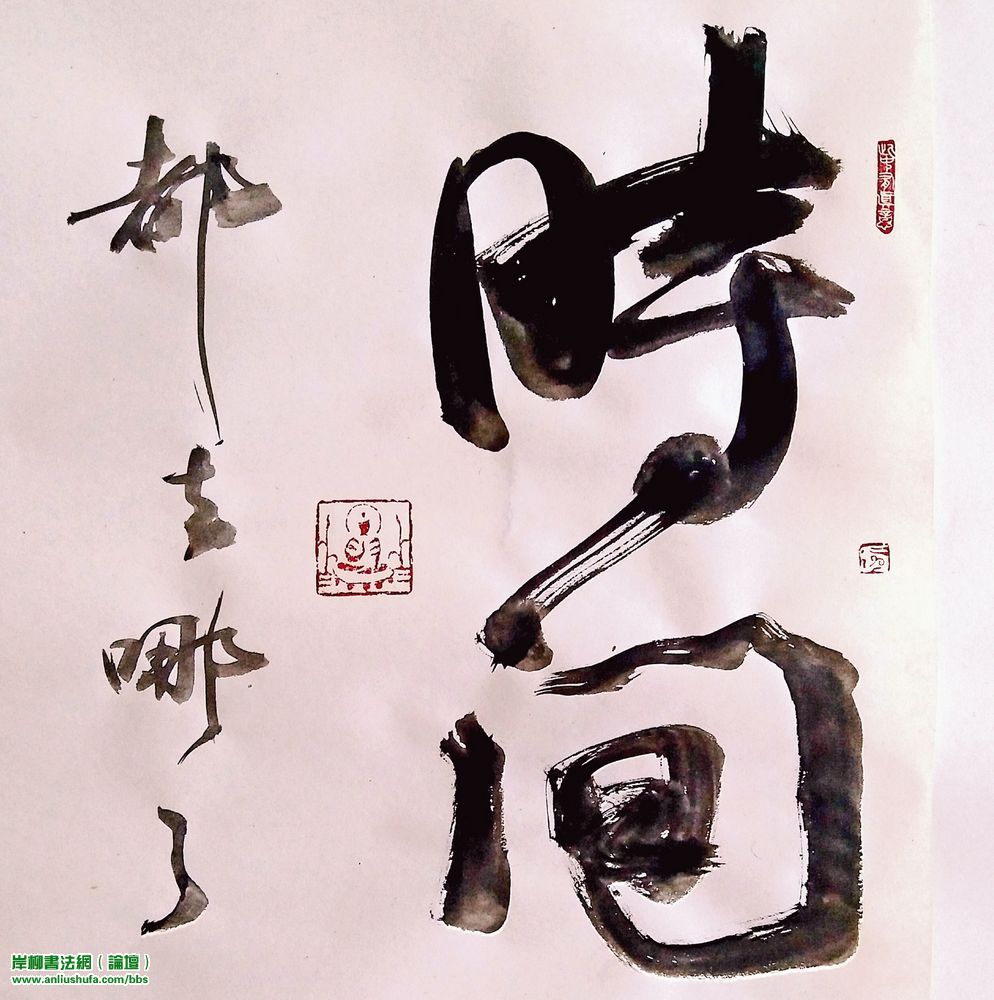 此中有真意
時间
都去哪了
岸柳書法網（論壇）
www.anliushufa.com/bbs